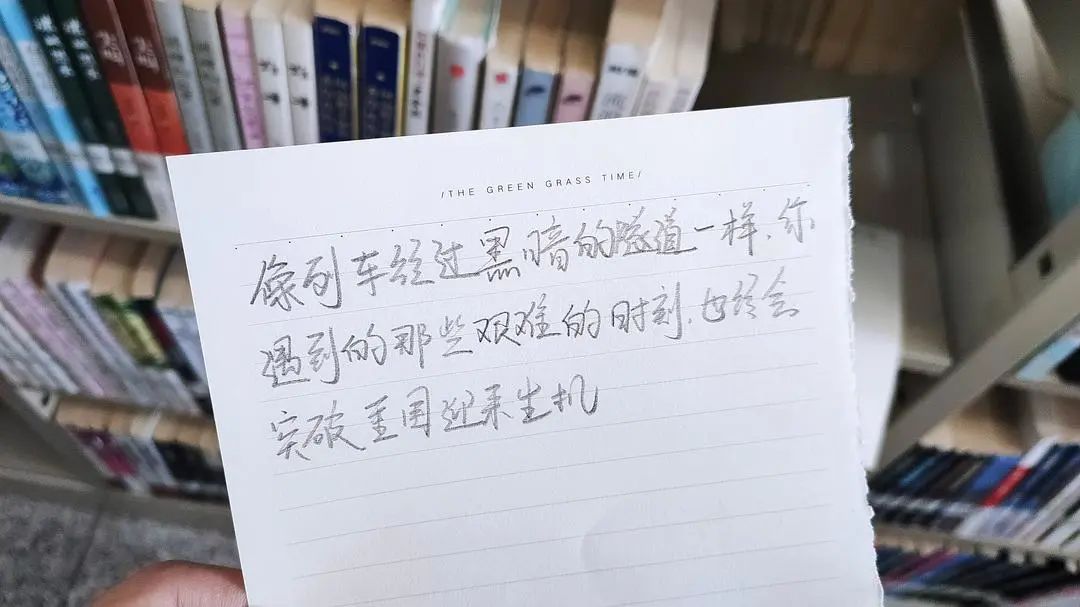 /THE GREEN GRASS TIME/
像列车经过黑暗的隧道一样、你
遇到的那些艰难的时刻、也终会
突破重围迎来生机